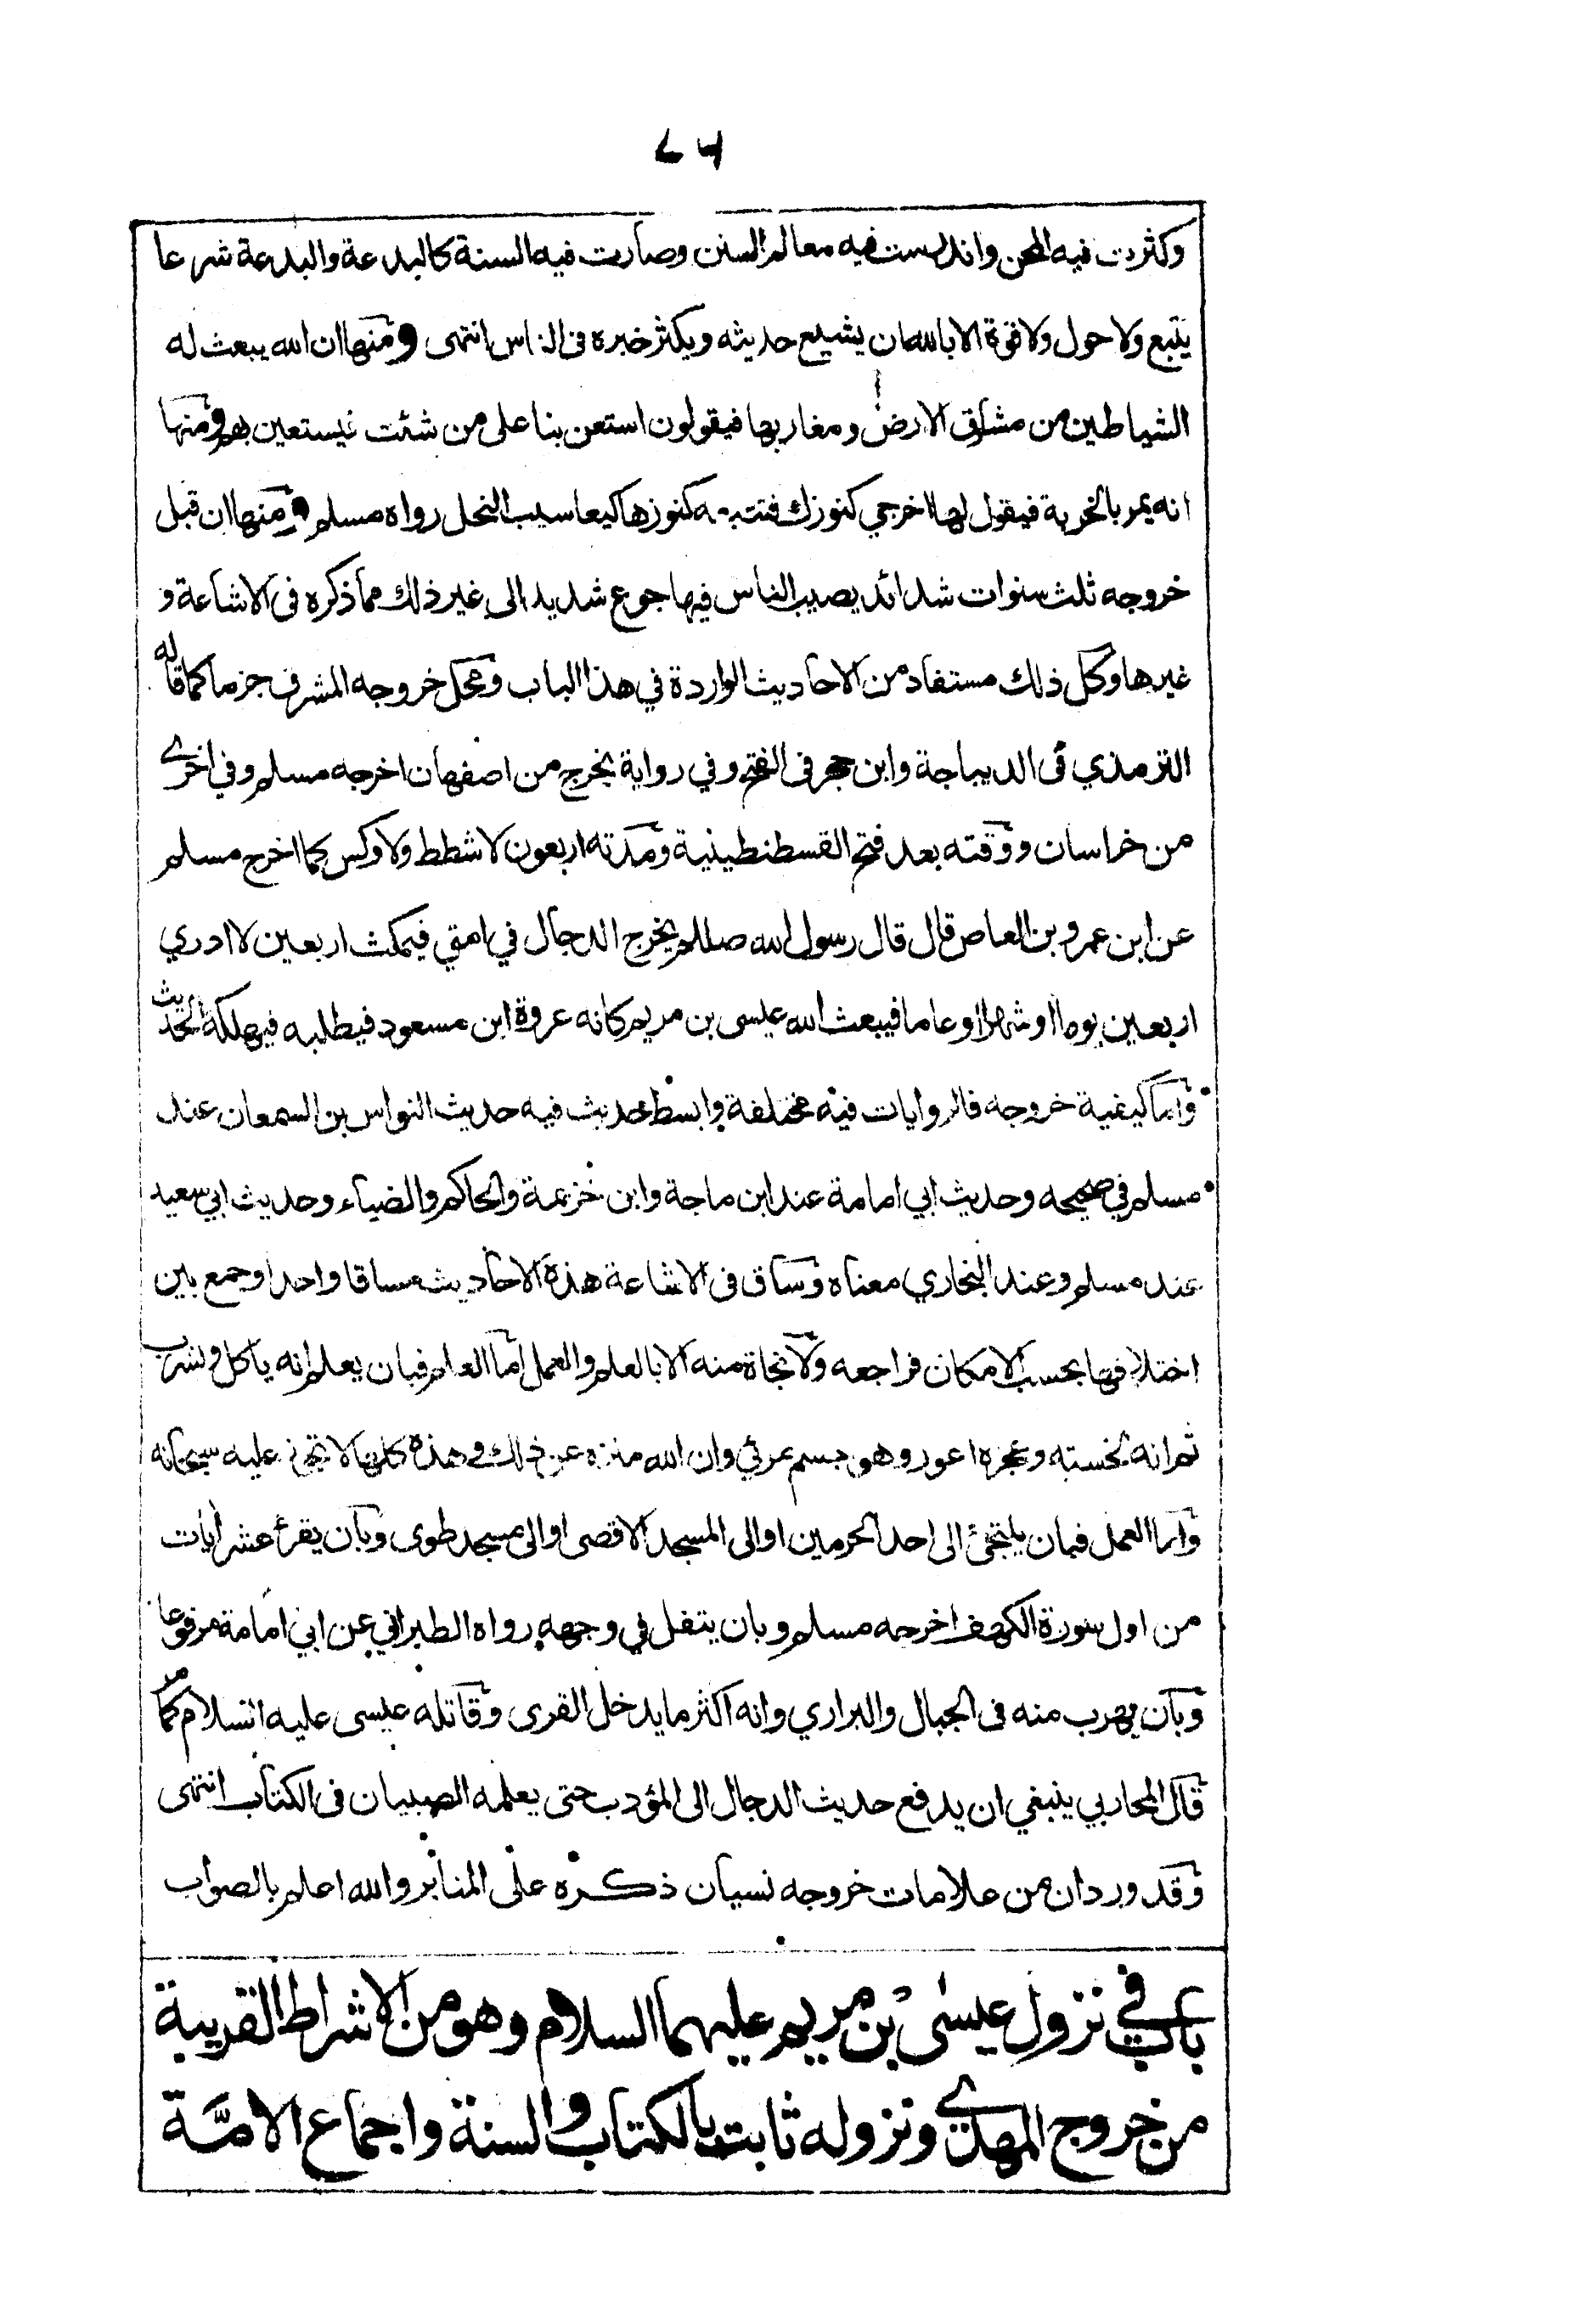 ٧٦
وكثرت فيه المحن واندرست فيه معالم السنن وصارت فيه السنة كالبدعة والبدعة شرعا
يتبع ولا حول ولا قوة الا بالله ان يشيع حديثه ويكثر خبره في الناس انتهى ومنها ان الله يبعث له
الشياطين من مشارق الارض ومغاربها فيقولون استعن بنا على من شئت فيستعين بهم ومنها
انه يمر بالخربة فيقول لها اخرجي كنوزك فتتبعه كنوزها كيعاسيب النحل رواه مسلم ومنها ان قبل
خروجه ثلث سنوات شدائد يصيب الناس فيها جوع شديد الى غير ذلك مما ذكره في الاشاعة و
غيرها وكل ذلك مستفاد من الاحاديث الواردة في هذا الباب ومحل خروجه المشرق جزما كما قاله
الترمذي في الديباجة وابن حجر في الفتح وفي رواية يخرج من اصفهان اخرجه مسلم وفي اخرى
من خراسان ووقته بعد فتح القسطنطينية ومدته اربعون لا شطط ولا وكس كما اخرج مسلم
عن ابن عمرو بن العاص قال قال رسول الله صللم يخرج الدجال في امتي فيمكث اربعين لا ادري
اربعين يوما او شهرا او عاما فيبعث الله عيسى بن مريم كانه عروة ابن مسعود فيطلبه فيهلكه الحديث
واما كيفية خروجه فالروايات فيه مختلفة وابسط حديث فيه حديث النواس بن السمعان عند
مسلم في صحيحه وحديث ابي امامة عند ابن ماجة وابن خزيمة والحاكم والضياء وحديث ابي سعيد
عند مسلم وعند البخاري معناه وساق في الاشاعة هذه الاحاديث مساقا واحدا وجمع بين
اختلافها بحسب الامكان فراجعه ولا نجاة منه الا بالعلم والعمل اما العلم فبان يعلم انه ياكل ويشرب
ثم انه لخسته وعجزه اعور وهو جسم مرئي وان الله منزه عن ذلك وهذه كلها لا تجوز عليه سبحانه
واما العمل فبان يلتجئ الى احد الحرمين او الى المسجد الاقصى او الى مسجد طوى وبان يقرأ عشر ايات
من اول سورة الكهف اخرجه مسلم وبان يتفل في وجهه رواه الطبراني عن ابي امامة مرفوعا
وبان يهرب منه في الجبال والبراري وانه اكثر ما يدخل القرى وقاتله عيسى عليه السلام كما مر
قال المحاربي ينبغي ان يدفع حديث الدجال الى المؤدب حتى يعلمه الصبيان في الكتاب انتهى
وقد ورد ان من علامات خروجه نسيان ذكره على المنابر والله اعلم بالصواب
باب في نزول عيسى بن مريم عليهما السلام وهو من الاشراط القريبة
من خروج المهدي ونزوله ثابت بالكتاب والسنة واجماع الامّة